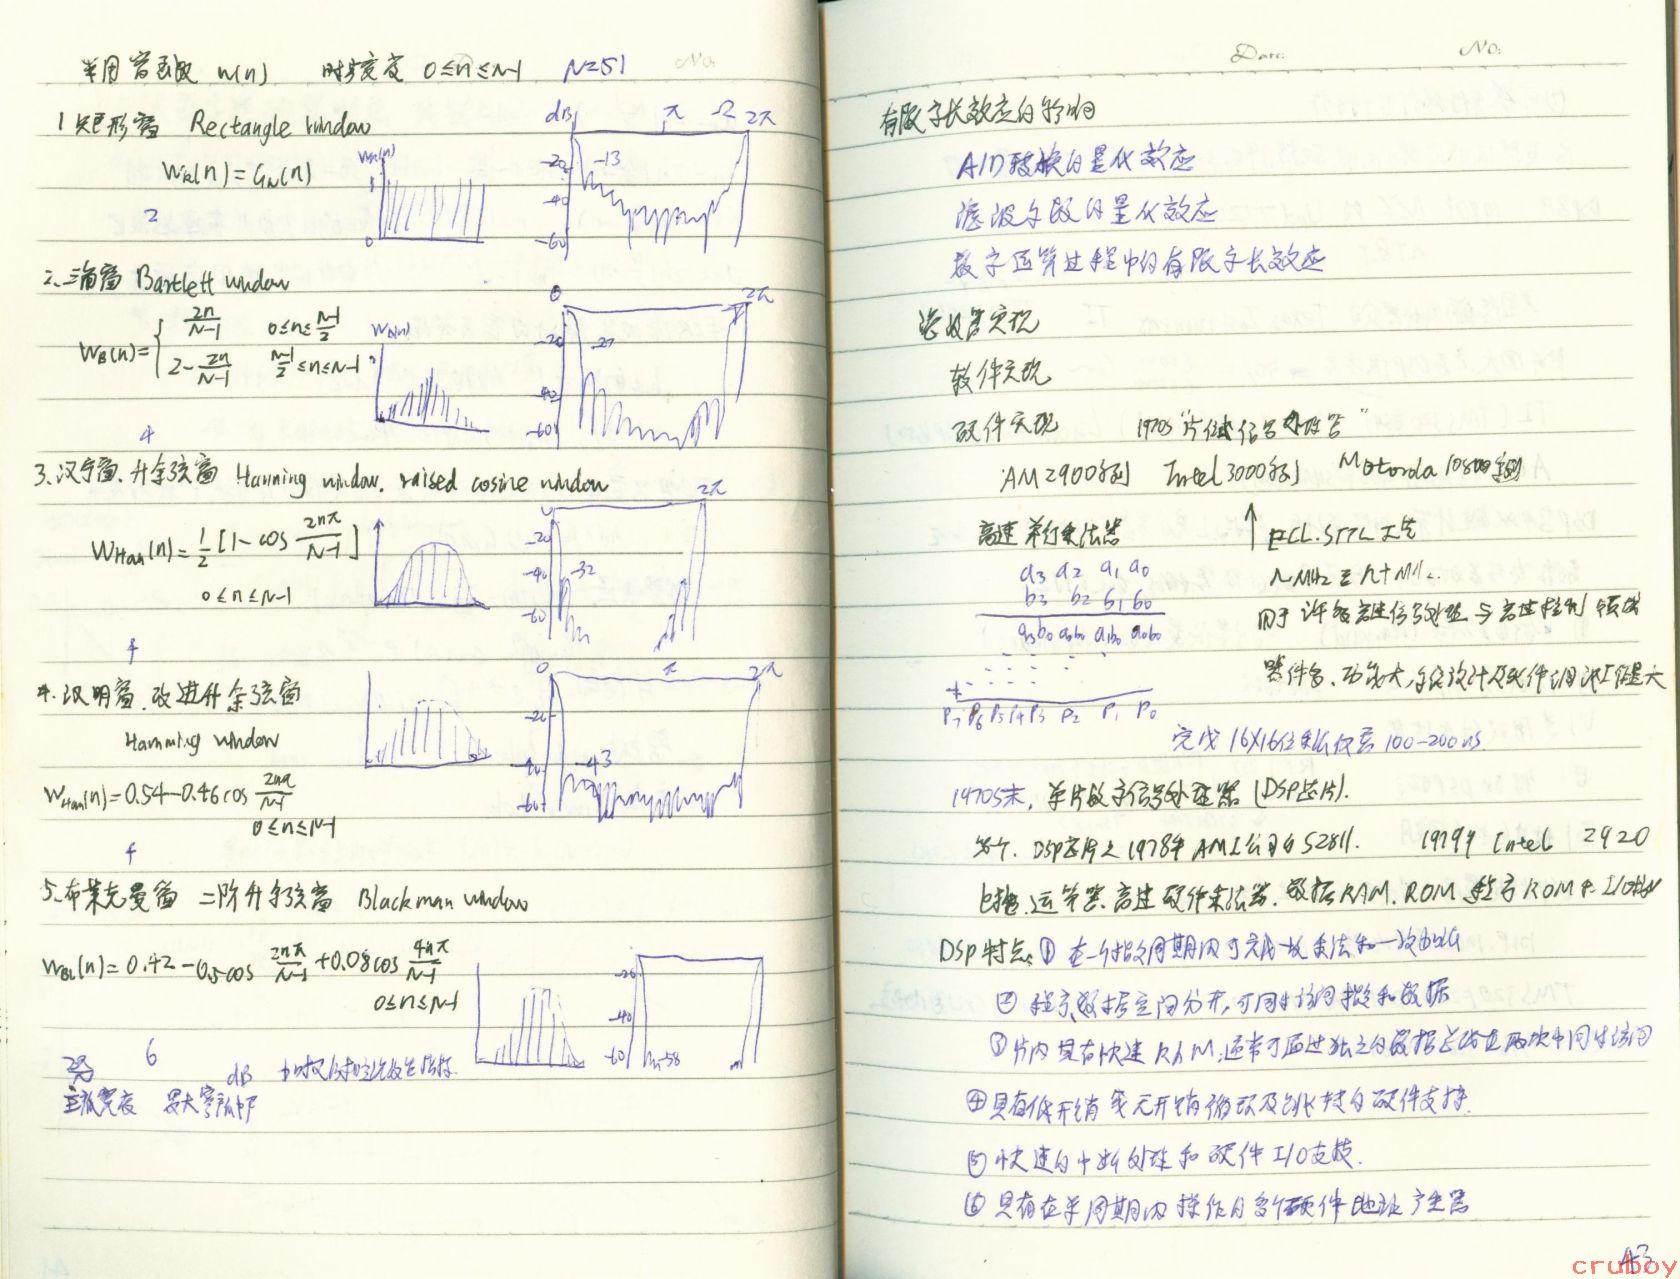 常用窗函数 w(n) 时域宽度 0≤n≤N-1 N=51
1 矩形窗 Rectangle window
W_R(n)=G_N(n)
2
W_R(n)
0
dB π Ω 2π
-20 -13
-40
-60
2. 三角窗 Bartlett window
W_B(n)= { 2n/(N-1) 0≤n≤(N-1)/2
2-2n/(N-1) (N-1)/2≤n≤N-1
4
W_B(n)
0 2π
-20 -27
-40
-60
3. 汉宁窗. 升余弦窗 Hanning window. raised cosine window
W_Han(n)=1/2[1-cos 2nπ/(N-1)]
0≤n≤N-1
4
0 2π
-20
-40 -32
-60
4. 汉明窗. 改进升余弦窗
Hamming window
W_Ham(n)=0.54-0.46cos 2nπ/(N-1)
0≤n≤N-1
4
0 π 2π
-20
-40 -43
-60
5. 布莱克曼窗 二阶升余弦窗 Blackman window
W_BL(n)=0.42-0.5cos 2nπ/(N-1)+0.08cos 4nπ/(N-1)
0≤n≤N-1
-20
-40
-60 -58
6 dB
主瓣宽度 最大旁瓣
No:
Date: No:
有限字长效应的影响
A/D转换的量化效应
滤波 的量化效应
数字运算过程中的有限字长效应
滤波器实现
软件实现
硬件实现 1970s "片 信号处理器"
AM2900系列 Intel 3000系列 Motorola 10800系列
高速并行乘法器 ↑ ECL. STTL工艺
a3 a2 a1 a0
b3 b2 b1 b0
a3b0 a2b0 a1b0 a0b0
+
P7 P6 P5 P4 P3 P2 P1 P0
几MHz至几十MHz
用于许多高速信号处理与高速控制领域
器件多、功耗大, 设计及软件调试工作量大
完成16X16位乘法仅需100-200ns.
1970s末, 单片数字信号处理器(DSP芯片).
首个. DSP芯片是1978年AMI公司的S2811. 1979年 Intel 2920
包括.运算器.高速硬件乘法器.数据RAM. ROM.程序ROM和I/O接口
DSP特点: ① 在一个指令周期内可完成一次乘法和一次加法
② 程序数据空间分开,可同时访问指令和数据
③ 片内具有快速RAM,通常可通过独立的数据总线在两块中同时访问
④ 具有低开销或无开销循环及跳转的硬件支持.
⑤ 快速的中断处理和硬件I/O支持.
⑥ 具有在单周期内操作的多个硬件地址产生器
A3
cruboy